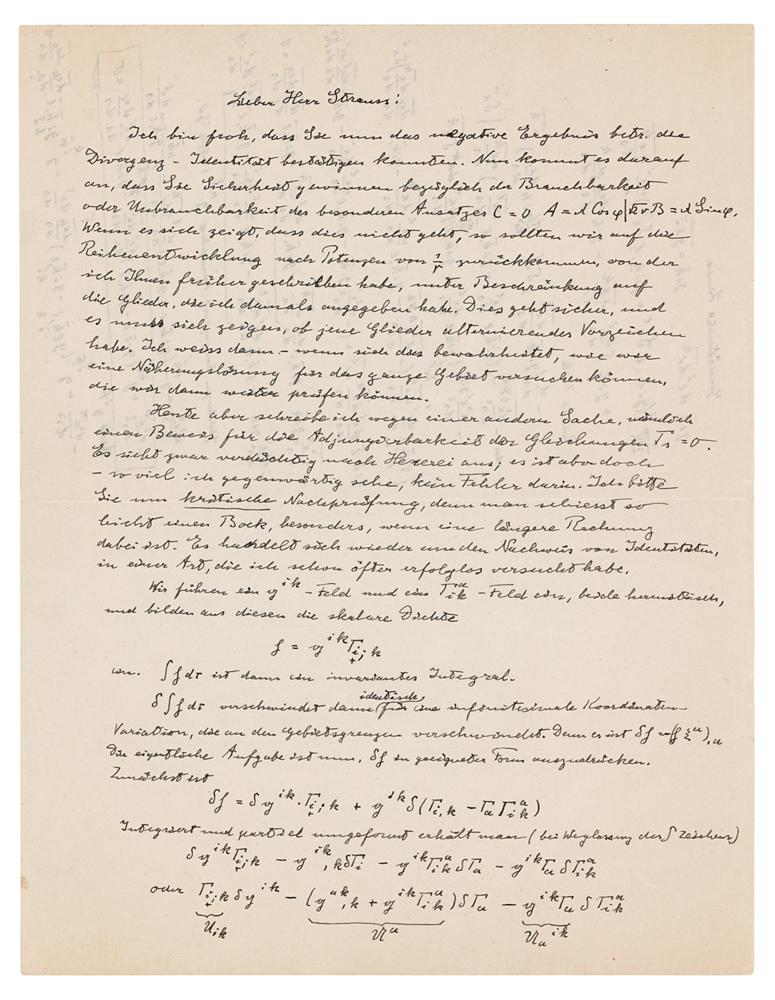 Lieber Herr Strauss!
Ich bin froh, dass Sie nun das negative Ergebnis betr. die
Divergenz-Identität bestätigen konnten. Nun kommt es darauf
an, dass Sie Sicherheit gewinnen bezüglich der Brauchbarkeit
oder Unbrauchbarkeit des besonderen Ansatzes C = 0 A = λ Cos φ | B = λ Sin φ.
Wenn es sich zeigt, dass dies nicht geht, so sollten wir auf die
Reihenentwicklung nach Potenzen von 1/r zurückkommen, von der
ich Ihnen früher geschrieben habe, unter Beschränkung auf
die Glieder, die ich damals angegeben habe. Dies geht sicher, und
es muss sich zeigen, ob jene Glieder alternierendes Vorzeichen
habe. Ich weiss dann – wenn sich dies bewahrheitet, wie wir
eine Näherungslösung für das ganze Gebiet versuchen können,
die wir dann weiter prüfen können.
Heute aber schreibe ich wegen einer andern Sache, nämlich
einen Beweis für die Adjungierbarkeit der Gleichungen Γi = 0.
Es sieht zwar verdächtig nach Hexerei aus; es ist aber doch
– so viel ich gegenwärtig sehe, kein Fehler darin. Ich bitte
Sie um kritische Nachprüfung, denn man schiesst so
leicht einen Bock, besonders, wenn eine längere Rechnung
dabei ist. Es handelt sich wieder um den Nachweis von Identitäten,
in einer Art, die ich schon öfter erfolglos versucht habe.
Wir führen ein 𝔤^ik - Feld und ein Γ^a_ik - Feld ein, beide hermitisch,
und bilden aus diesen die skalare Dichte
f = 𝔤^ik Γ_i;k
∫ f dτ ist dann ein invariantes Integral.
δ∫ f dτ verschwindet dann identisch für eine infinitesimale Koordinaten-
Variation, die an den Gebietsgrenzen verschwindet. Denn es ist δf = (f ξ^a),a
Die eigentliche Aufgabe ist nun, δf in geeigneter Form auszudrücken.
Zunächst ist
δf = δ𝔤^ik · Γ_i;k + 𝔤^ik δ(Γ_i,k − Γ_a Γ^a_ik)
Integriert und partiel umgeformt erhält man (bei Weglassung des ∫ Zeichens)
δ𝔤^ik Γ_i;k − 𝔤^ik,k δΓ_i − 𝔤^ik Γ^a_ik δΓ_a − 𝔤^ik Γ_a δΓ^a_ik
oder Γ_i;k δ𝔤^ik − (𝔤^ak,k + 𝔤^ik Γ^a_ik) δΓ_a − 𝔤^ik Γ_a δΓ^a_ik
𝔘_ik 𝔘^a 𝔘_a^ik